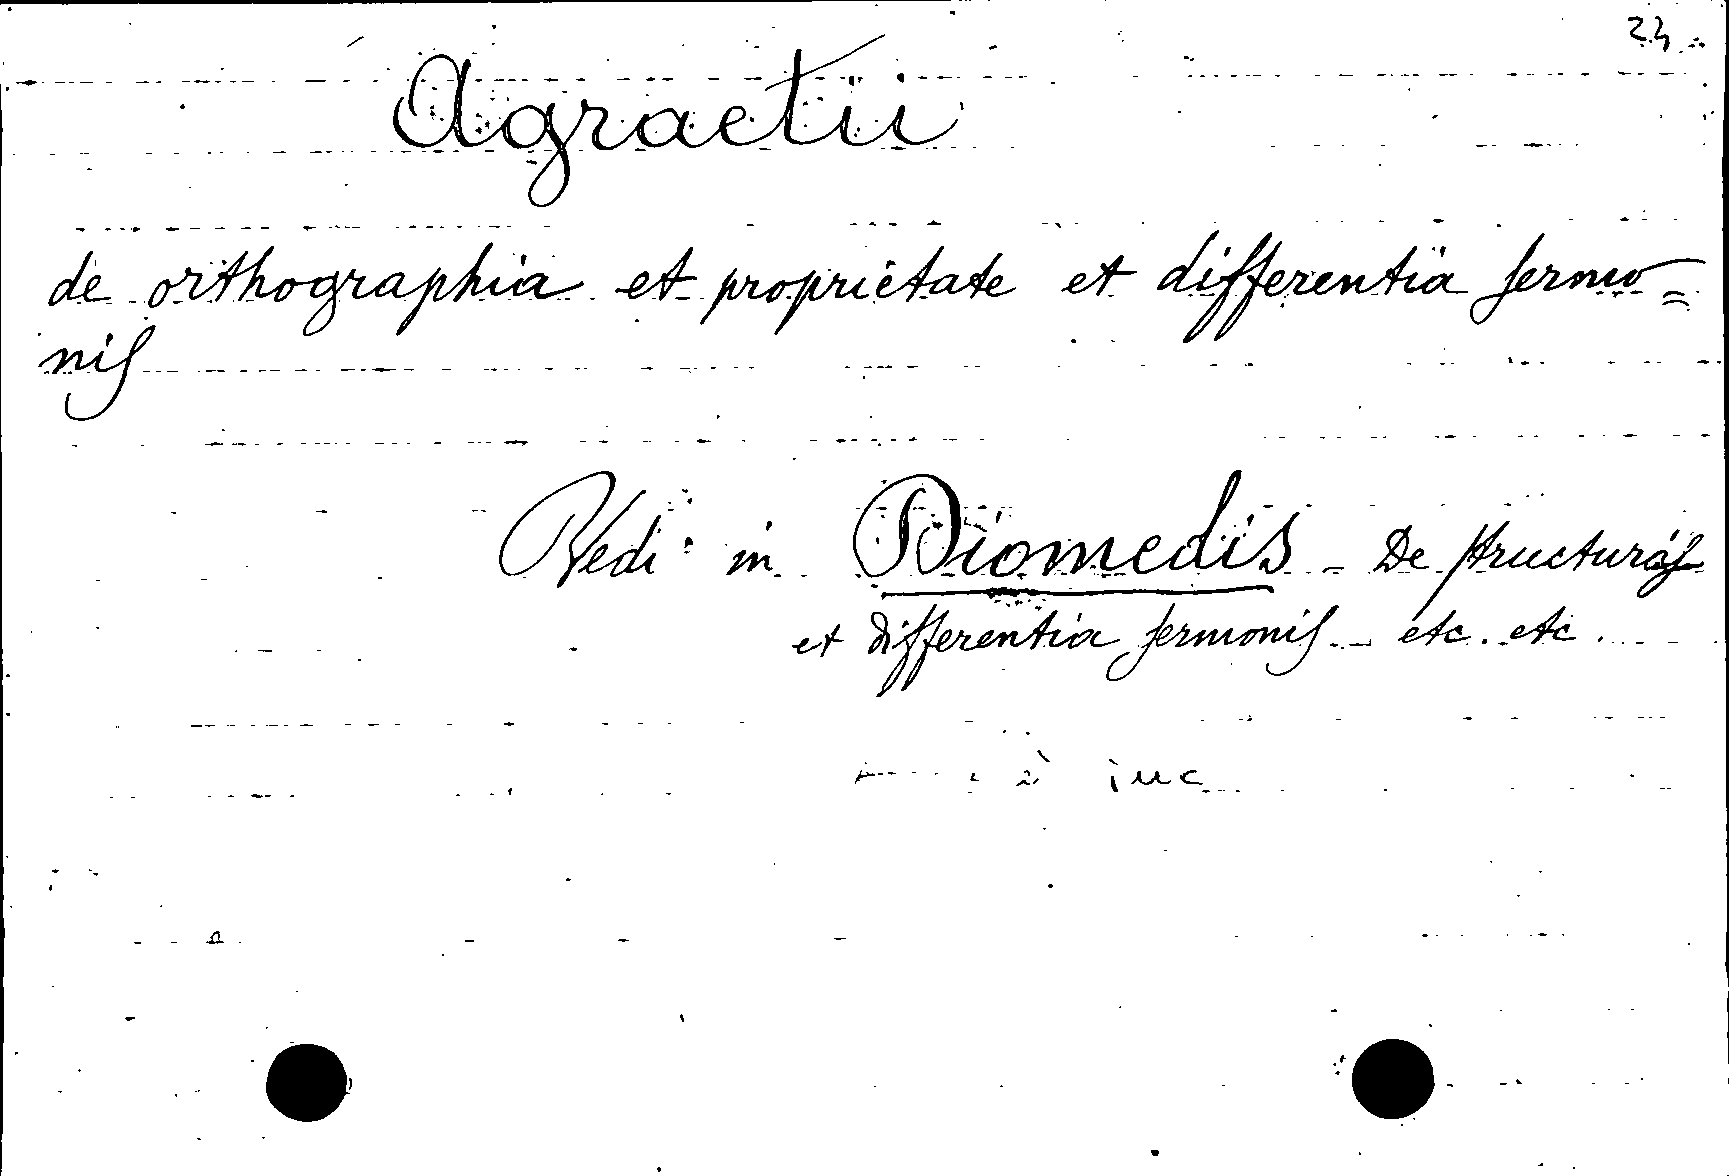 23
Agraetii
de orthographia et proprietate et differentia sermo=
nis
Vedi in Diomedis - De structuras
et differentia sermonis - etc. etc.
inc